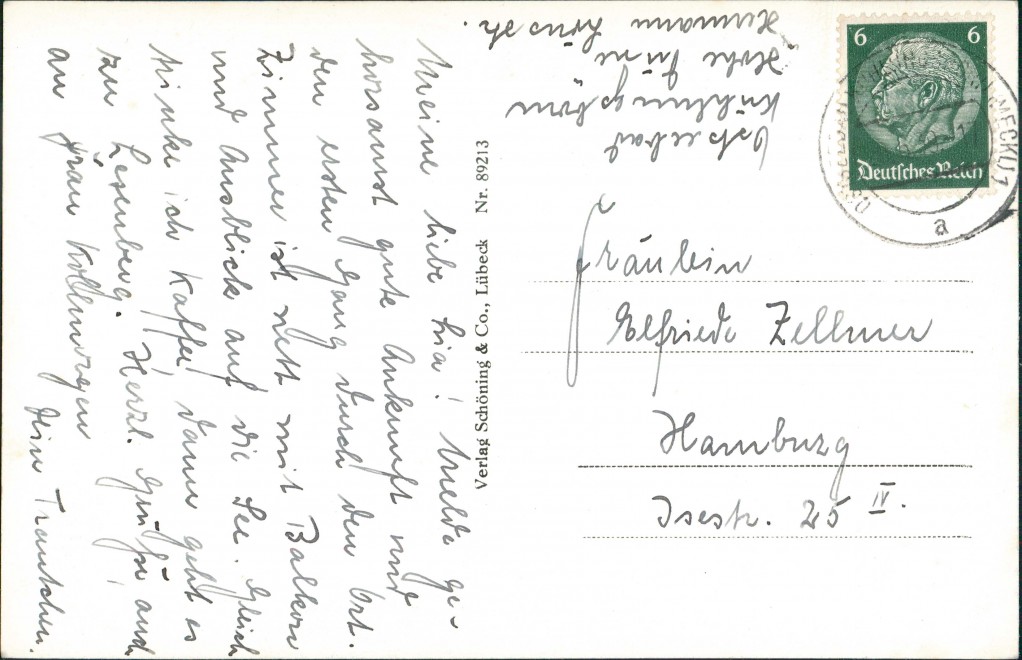 Meine liebe Lia! Melde ge-
horsamst gute Ankunft und
den ersten Gang durch den Ort.
Zimmer ist nett mit Balkon
und Ausblick auf die See. Gleich
trinke ich Kaffee, dann geht es
zu Lesenberg. Herzl. Grüße auch
an Frau Kollmorgen
Dein Trautchen.
Ostseebad
Kühlungsborn
Hermann
Verlag Schöning & Co., Lübeck Nr. 89213
6 6
Deutsches Reich
(MECKL) 1
a
Fräulein
Elfriede Zellmer
Hamburg
Isestr. 25 IV.